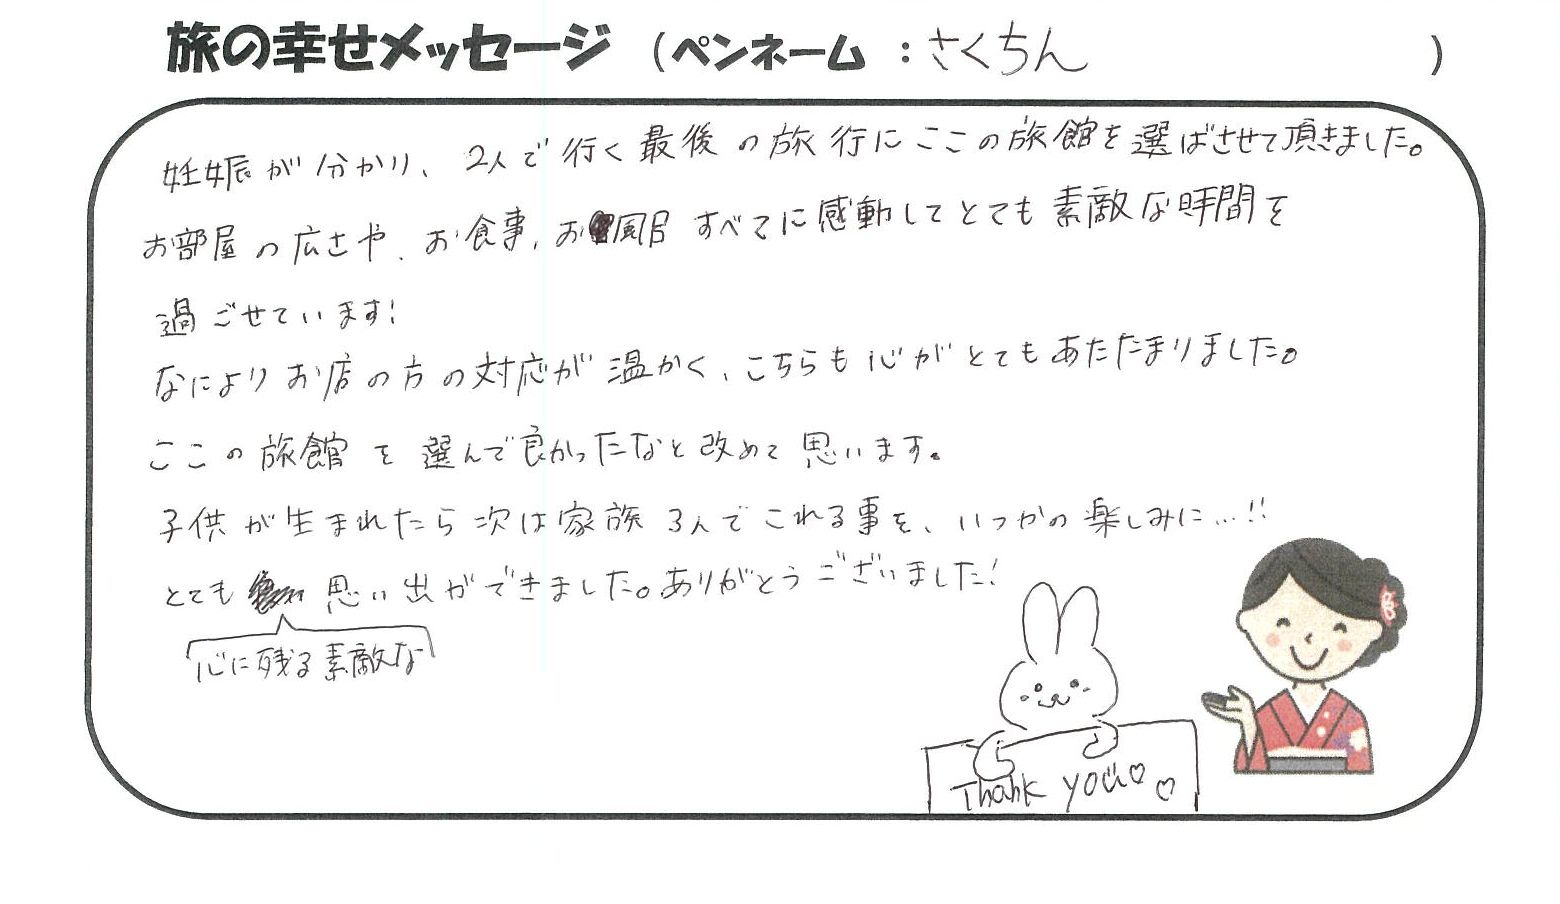 旅の幸せメッセージ（ペンネーム：さくちん）
妊娠が分かり、2人で行く最後の旅行にここの旅館を選ばさせて頂きました。
お部屋の広さや、お食事、お風呂すべてに感動してとても素敵な時間を
過ごせています!
なによりお店の方の対応が温かく、こちらも心がとてもあたたまりました。
ここの旅館を選んで良かったなと改めて思います。
子供が生まれたら次は家族3人でこれる事を、いつかの楽しみに…!!
とても思い出ができました。ありがとうございました!
心に残る素敵な
Thank you♡♡